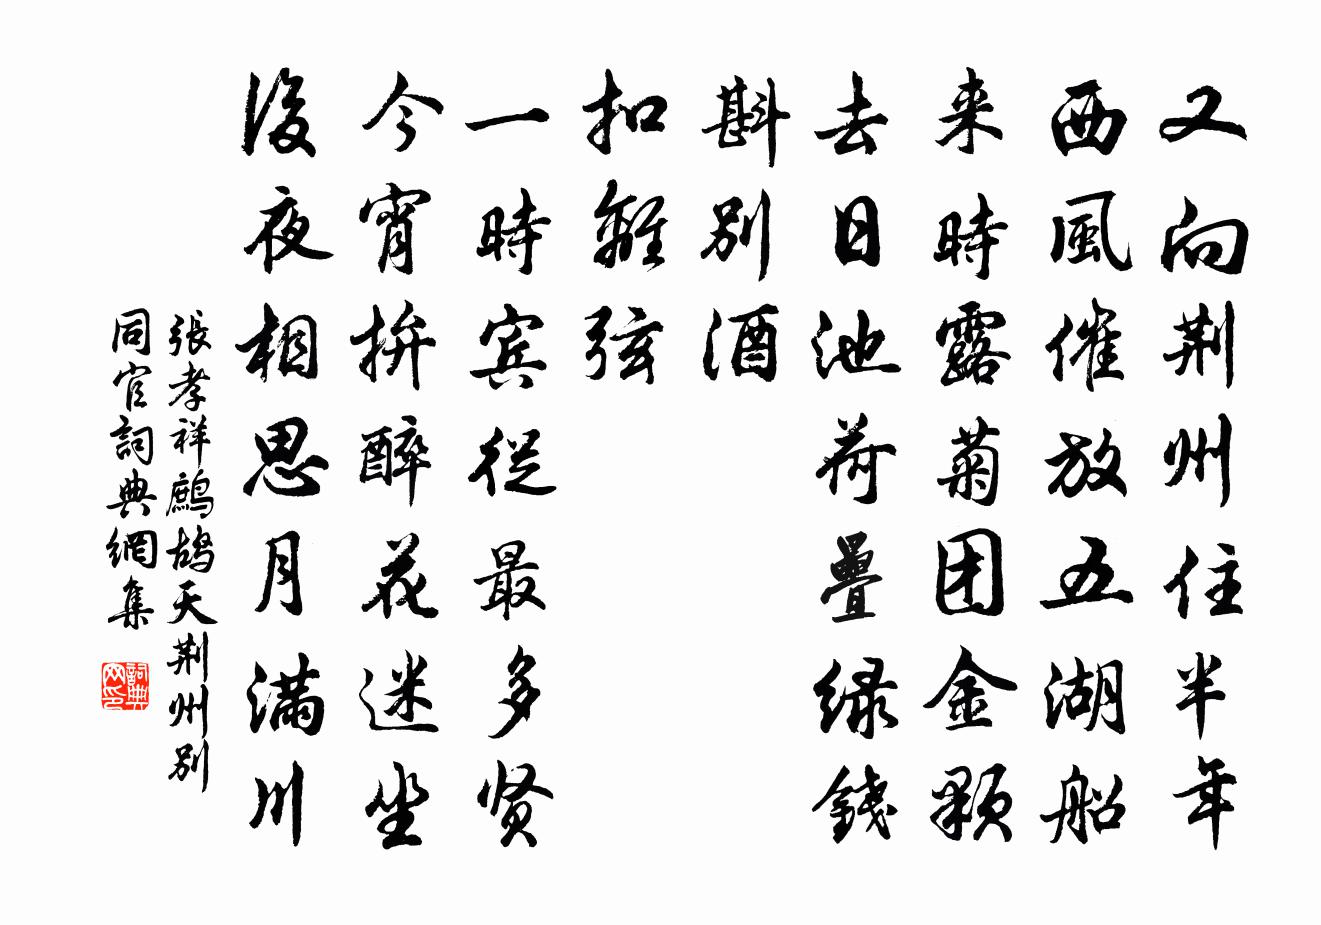 又向荆州住半年
西風催放五湖船
来時露菊团金顆
去日池荷疊绿錢
斟别酒
扣離弦
一時宾從最多贤
今宵拚醉花迷坐
後夜相思月满川
張孝祥鷓鴣天荆州别
同官詞典網集
詞典网印